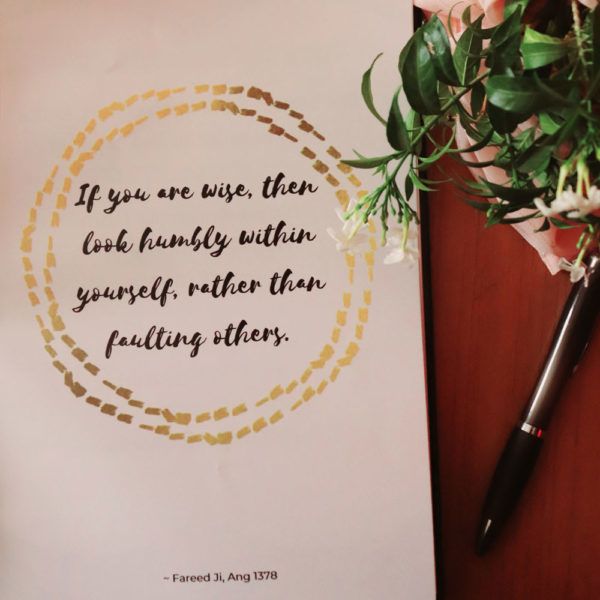 If you are wise, then
look humbly within
yourself, rather than
faulting others.
~ Fareed Ji, Ang 1378